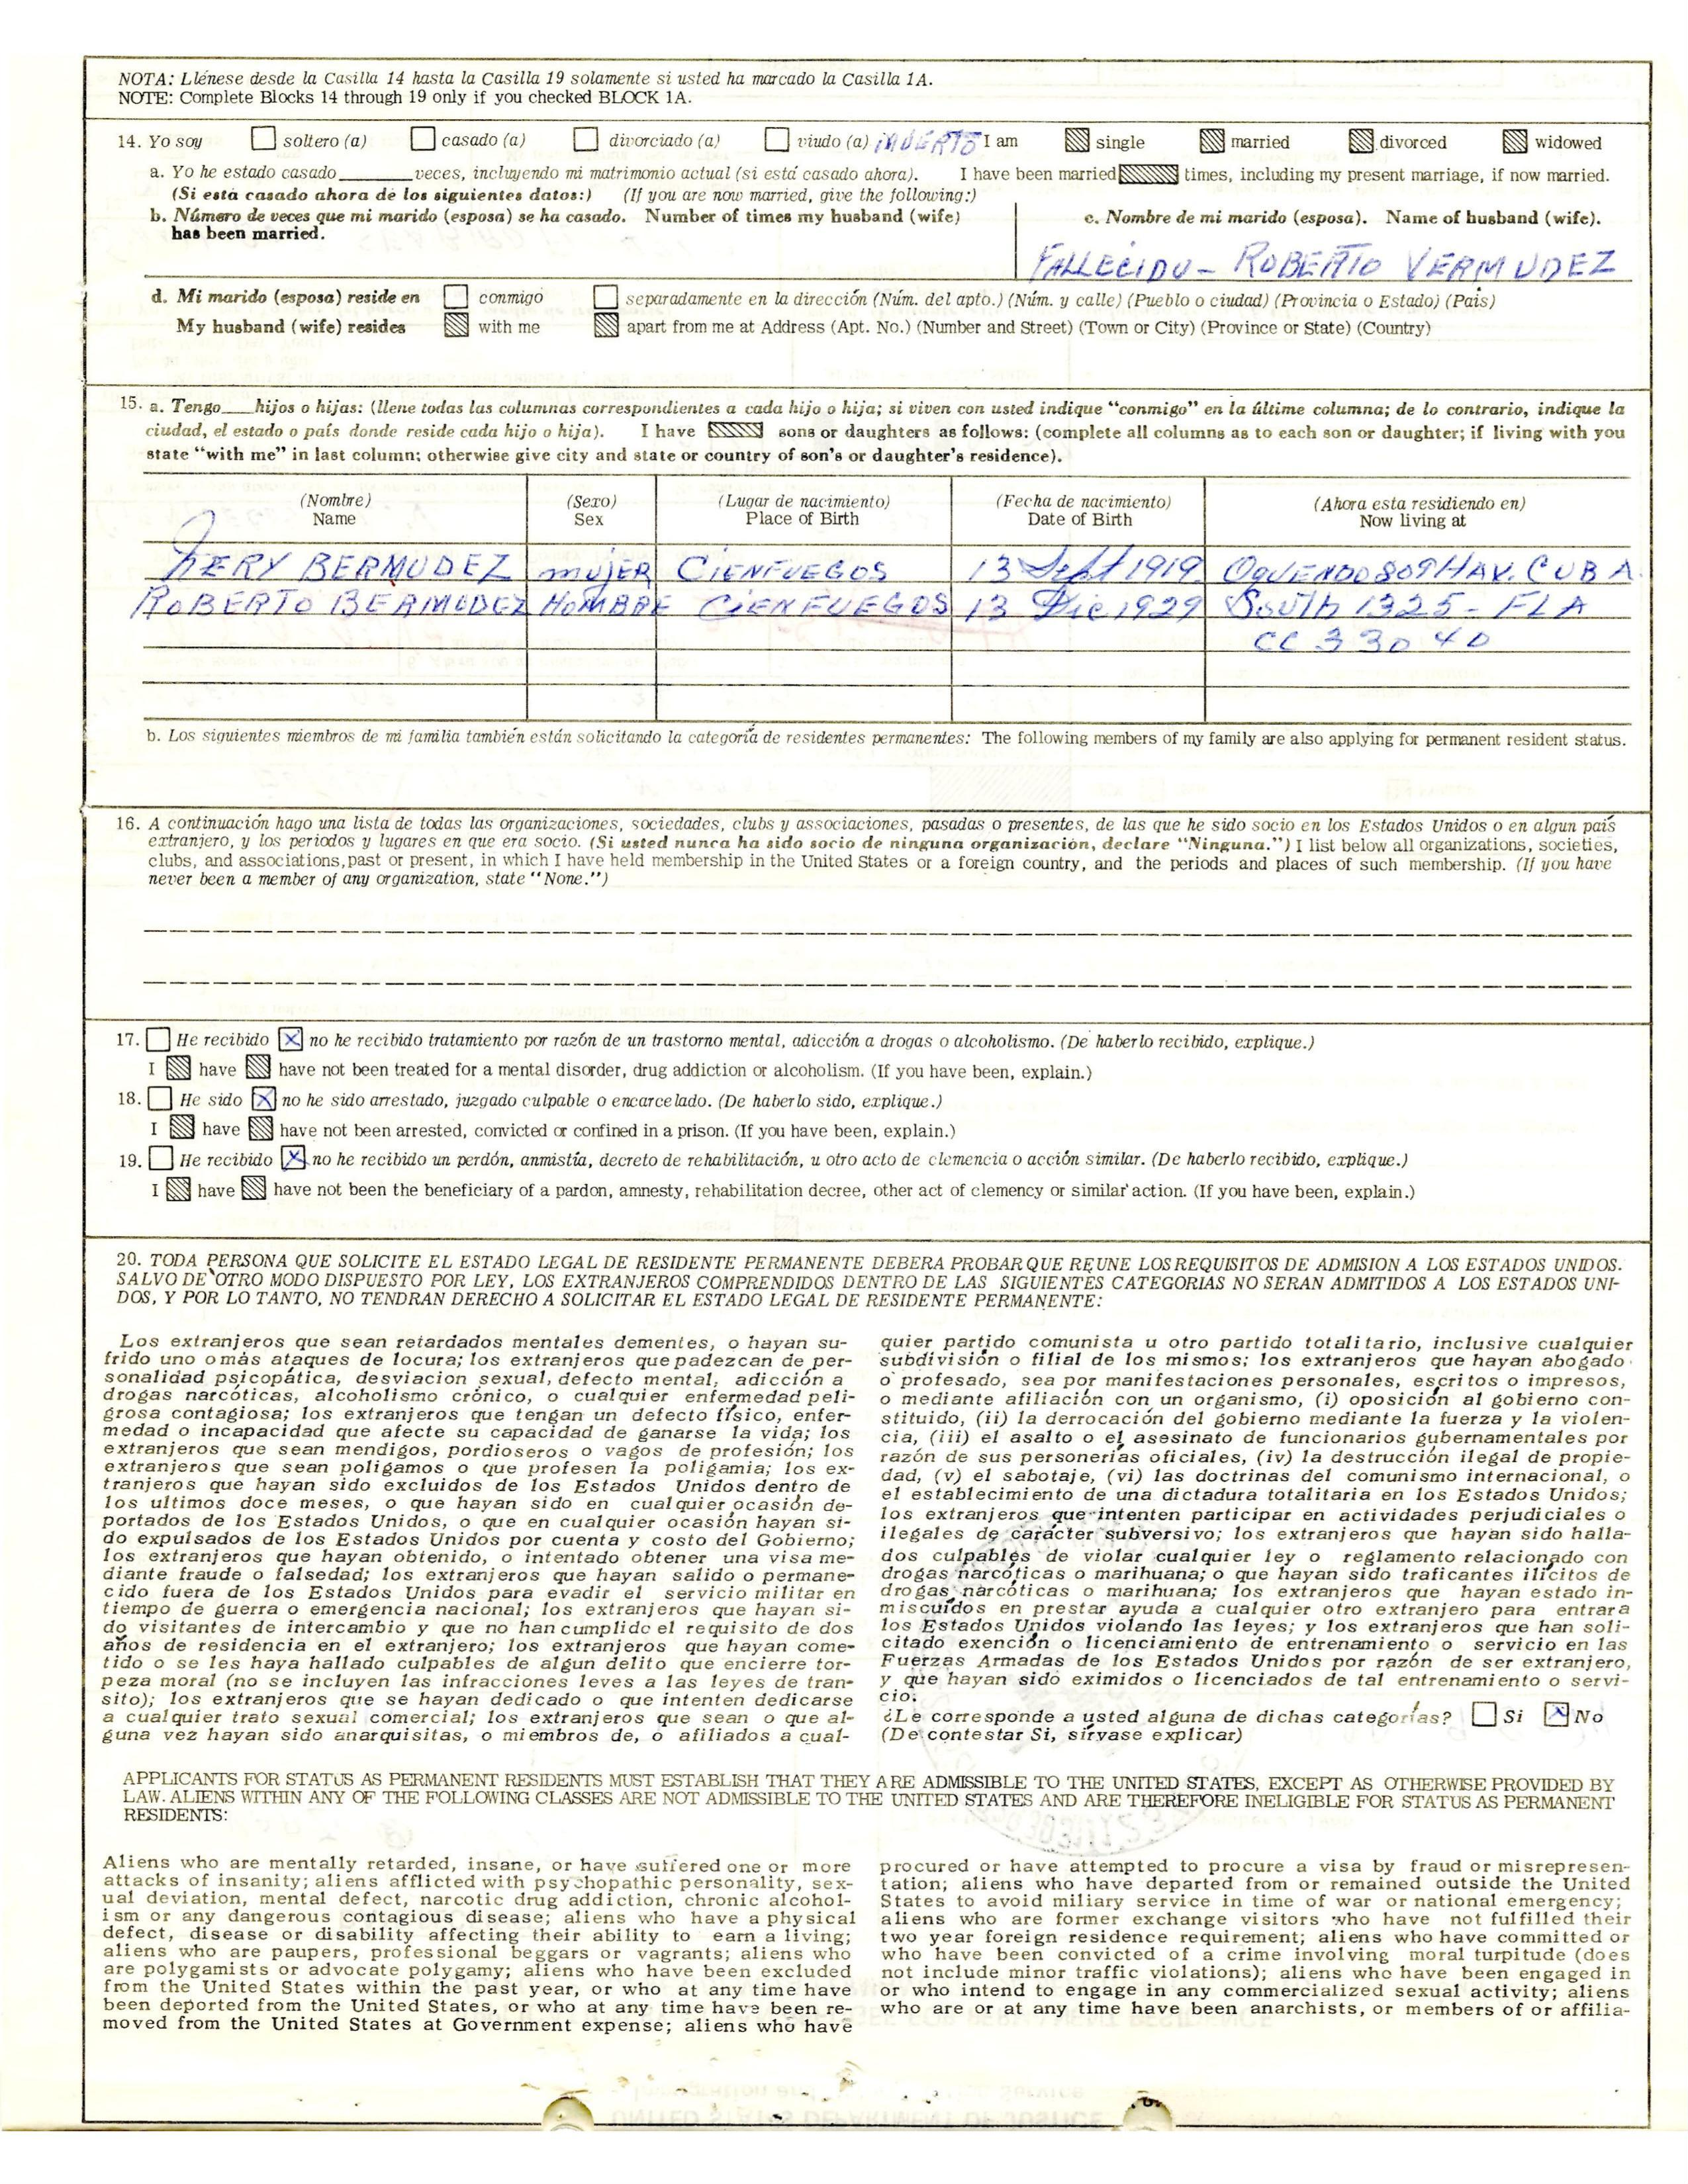 NOTA: Llénese desde la Casilla 14 hasta la Casilla 19 solamente si usted ha marcado la Casilla 1A.
NOTE: Complete Blocks 14 through 19 only if you checked BLOCK 1A.
14. Yo soy soltero (a) casado (a) divorciado (a) viudo (a) MUERTO I am single married divorced widowed
a. Yo he estado casado______veces, incluyendo mi matrimonio actual (si está casado ahora). I have been married times, including my present marriage, if now married.
(Si está casado ahora de los siguientes datos:) (If you are now married, give the following:)
b. Número de veces que mi marido (esposa) se ha casado. Number of times my husband (wife) has been married.
c. Nombre de mi marido (esposa). Name of husband (wife).
FALLECIDO - ROBERTO VERMUDEZ
d. Mi marido (esposa) reside en conmigo separadamente en la dirección (Núm. del apto.) (Núm. y calle) (Pueblo o ciudad) (Provincia o Estado) (País)
My husband (wife) resides with me apart from me at Address (Apt. No.) (Number and Street) (Town or City) (Province or State) (Country)
15. a. Tengo___hijos o hijas: (llene todas las columnas correspondientes a cada hijo o hija; si viven con usted indique "conmigo" en la últime columna; de lo contrario, indique la
ciudad, el estado o país donde reside cada hijo o hija). I have sons or daughters as follows: (complete all columns as to each son or daughter; if living with you
state "with me" in last column; otherwise give city and state or country of son's or daughter's residence).
(Nombre) (Sexo) (Lugar de nacimiento) (Fecha de nacimiento) (Ahora esta residiendo en)
Name Sex Place of Birth Date of Birth Now living at
BERMUDEZ mujER CIENFUEGOS 13 Sept 1919 OQUENDO 809 HAV. CUBA
ROBERTO BERMUDEZ HOMBRE CIENFUEGOS 13 Dic 1929 South 1325 - FLA
CC 33040
b. Los siguientes miembros de mi familia también están solicitando la categoría de residentes permanentes: The following members of my family are also applying for permanent resident status.
16. A continuación hago una lista de todas las organizaciones, sociedades, clubs y associaciones, pasadas o presentes, de las que he sido socio en los Estados Unidos o en algun país
extranjero, y los periodos y lugares en que era socio. (Si usted nunca ha sido socio de ninguna organización, declare "Ninguna.") I list below all organizations, societies,
clubs, and associations, past or present, in which I have held membership in the United States or a foreign country, and the periods and places of such membership. (If you have
never been a member of any organization, state "None.")
17. He recibido X no he recibido tratamiento por razón de un trastorno mental, adicción a drogas o alcoholismo. (De haberlo recibido, explique.)
I have have not been treated for a mental disorder, drug addiction or alcoholism. (If you have been, explain.)
18. He sido X no he sido arrestado, juzgado culpable o encarcelado. (De haberlo sido, explique.)
I have have not been arrested, convicted or confined in a prison. (If you have been, explain.)
19. He recibido X no he recibido un perdón, anmistía, decreto de rehabilitación, u otro acto de clemencia o acción similar. (De haberlo recibido, explique.)
I have have not been the beneficiary of a pardon, amnesty, rehabilitation decree, other act of clemency or similar action. (If you have been, explain.)
20. TODA PERSONA QUE SOLICITE EL ESTADO LEGAL DE RESIDENTE PERMANENTE DEBERA PROBAR QUE REUNE LOS REQUISITOS DE ADMISION A LOS ESTADOS UNIDOS.
SALVO DE OTRO MODO DISPUESTO POR LEY, LOS EXTRANJEROS COMPRENDIDOS DENTRO DE LAS SIGUIENTES CATEGORIAS NO SERAN ADMITIDOS A LOS ESTADOS UNI-
DOS, Y POR LO TANTO, NO TENDRAN DERECHO A SOLICITAR EL ESTADO LEGAL DE RESIDENTE PERMANENTE:
Los extranjeros que sean retardados mentales dementes, o hayan su-
frido uno o más ataques de locura; los extranjeros que padezcan de per-
sonalidad psicopática, desviacion sexual, defecto mental, adicción a
drogas narcóticas, alcoholismo crónico, o cualquier enfermedad peli-
grosa contagiosa; los extranjeros que tengan un defecto físico, enfer-
medad o incapacidad que afecte su capacidad de ganarse la vida; los
extranjeros que sean mendigos, pordioseros o vagos de profesión; los
extranjeros que sean polígamos o que profesen la poligamia; los ex-
tranjeros que hayan sido excluidos de los Estados Unidos dentro de
los ultimos doce meses, o que hayan sido en cualquier ocasión de-
portados de los Estados Unidos, o que en cualquier ocasión hayan si-
do expulsados de los Estados Unidos por cuenta y costo del Gobierno;
los extranjeros que hayan obtenido, o intentado obtener una visa me-
diante fraude o falsedad; los extranjeros que hayan salido o permane-
cido fuera de los Estados Unidos para evadir el servicio militar en
tiempo de guerra o emergencia nacional; los extranjeros que hayan si-
do visitantes de intercambio y que no han cumplido el requisito de dos
años de residencia en el extranjero; los extranjeros que hayan come-
tido o se les haya hallado culpables de algun delito que encierre tor-
peza moral (no se incluyen las infracciones leves a las leyes de tran-
sito); los extranjeros que se hayan dedicado o que intenten dedicarse
a cualquier trato sexual comercial; los extranjeros que sean o que al-
guna vez hayan sido anarquisitas, o miembros de, o afiliados a cual-
quier partido comunista u otro partido totalitario, inclusive cualquier
subdivisión o filial de los mismos; los extranjeros que hayan abogado
o profesado, sea por manifestaciones personales, escritos o impresos,
o mediante afiliación con un organismo, (i) oposición al gobierno con-
stituido, (ii) la derrocación del gobierno mediante la fuerza y la violen-
cia, (iii) el asalto o el asesinato de funcionarios gubernamentales por
razón de sus personerías oficiales, (iv) la destrucción ilegal de propie-
dad, (v) el sabotaje, (vi) las doctrinas del comunismo internacional, o
el establecimiento de una dictadura totalitaria en los Estados Unidos;
los extranjeros que intenten participar en actividades perjudiciales o
ilegales de carácter subversivo; los extranjeros que hayan sido halla-
dos culpables de violar cualquier ley o reglamento relacionado con
drogas narcóticas o marihuana; o que hayan sido traficantes ilícitos de
drogas narcóticas o marihuana; los extranjeros que hayan estado in-
miscuídos en prestar ayuda a cualquier otro extranjero para entrar a
los Estados Unidos violando las leyes; y los extranjeros que han soli-
citado exención o licenciamiento de entrenamiento o servicio en las
Fuerzas Armadas de los Estados Unidos por razón de ser extranjero,
y que hayan sido eximidos o licenciados de tal entrenamiento o servi-
cio.
¿Le corresponde a usted alguna de dichas categorías? Si X No
(De contestar Si, sírvase explicar)
APPLICANTS FOR STATUS AS PERMANENT RESIDENTS MUST ESTABLISH THAT THEY ARE ADMISSIBLE TO THE UNITED STATES, EXCEPT AS OTHERWISE PROVIDED BY
LAW. ALIENS WITHIN ANY OF THE FOLLOWING CLASSES ARE NOT ADMISSIBLE TO THE UNITED STATES AND ARE THEREFORE INELIGIBLE FOR STATUS AS PERMANENT
RESIDENTS:
Aliens who are mentally retarded, insane, or have suffered one or more
attacks of insanity; aliens afflicted with psychopathic personality, sex-
ual deviation, mental defect, narcotic drug addiction, chronic alcohol-
ism or any dangerous contagious disease; aliens who have a physical
defect, disease or disability affecting their ability to earn a living;
aliens who are paupers, professional beggars or vagrants; aliens who
are polygamists or advocate polygamy; aliens who have been excluded
from the United States within the past year, or who at any time have
been deported from the United States, or who at any time have been re-
moved from the United States at Government expense; aliens who have
procured or have attempted to procure a visa by fraud or misrepresen-
tation; aliens who have departed from or remained outside the United
States to avoid miliary service in time of war or national emergency;
aliens who are former exchange visitors who have not fulfilled their
two year foreign residence requirement; aliens who have committed or
who have been convicted of a crime involving moral turpitude (does
not include minor traffic violations); aliens who have been engaged in
or who intend to engage in any commercialized sexual activity; aliens
who are or at any time have been anarchists, or members of or affilia-